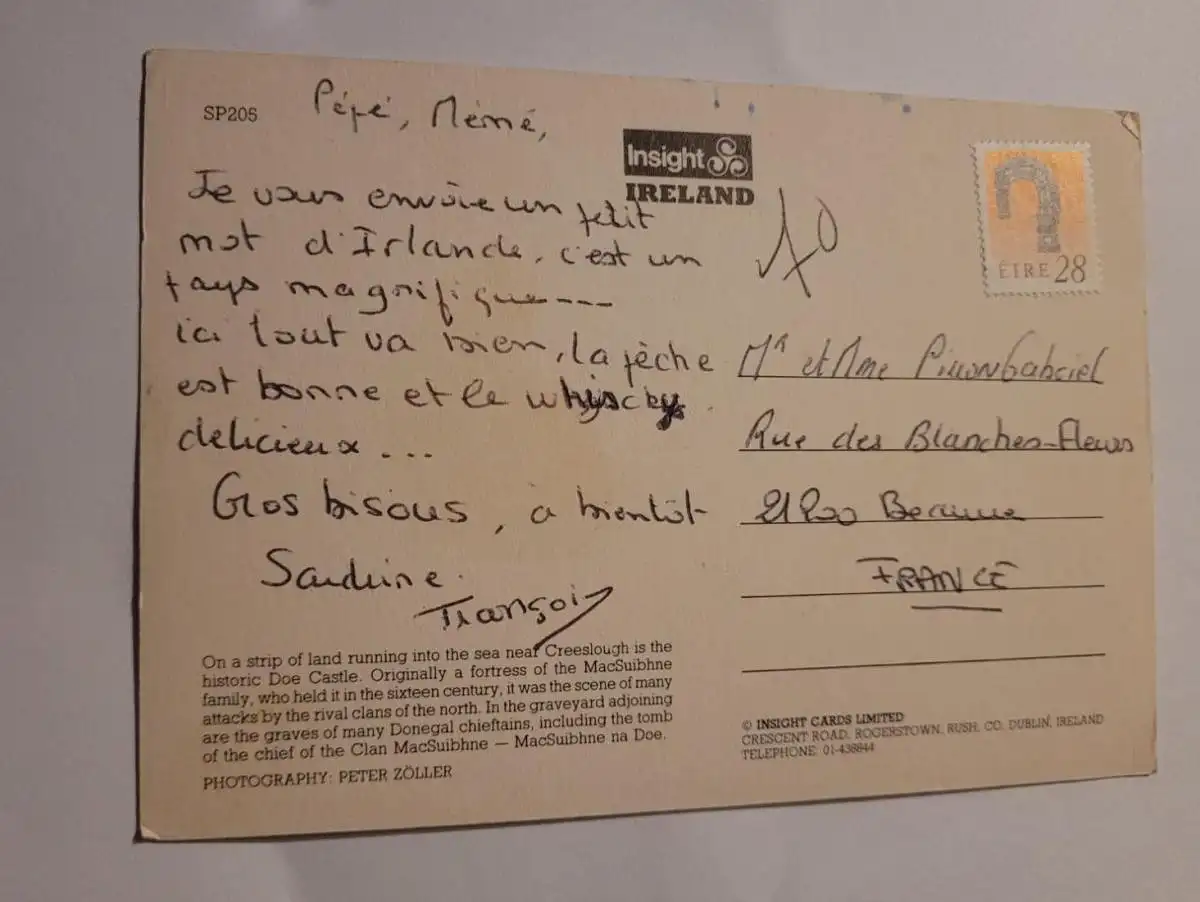 SP205
Pépé, Mémé,
Insight
IRELAND
Je vous envoie un petit
mot d'Irlande, c'est un
pays magnifique---
ici tout va bien, la pêche
est bonne et le whiscky
delicieux ...
Gros bisous, à bientôt
Sandrine.
François
ÉIRE 28
Mr et Mme Gabriel
Rue des Blanches-Fleurs
21200 Beaune
FRANCE
On a strip of land running into the sea near Creeslough is the
historic Doe Castle. Originally a fortress of the MacSuibhne
family, who held it in the sixteen century, it was the scene of many
attacks by the rival clans of the north. In the graveyard adjoining
are the graves of many Donegal chieftains, including the tomb
of the chief of the Clan MacSuibhne — MacSuibhne na Doe.
PHOTOGRAPHY: PETER ZÖLLER
© INSIGHT CARDS LIMITED
CRESCENT ROAD, ROGERSTOWN, RUSH, CO. DUBLIN, IRELAND
TELEPHONE: 01-436844